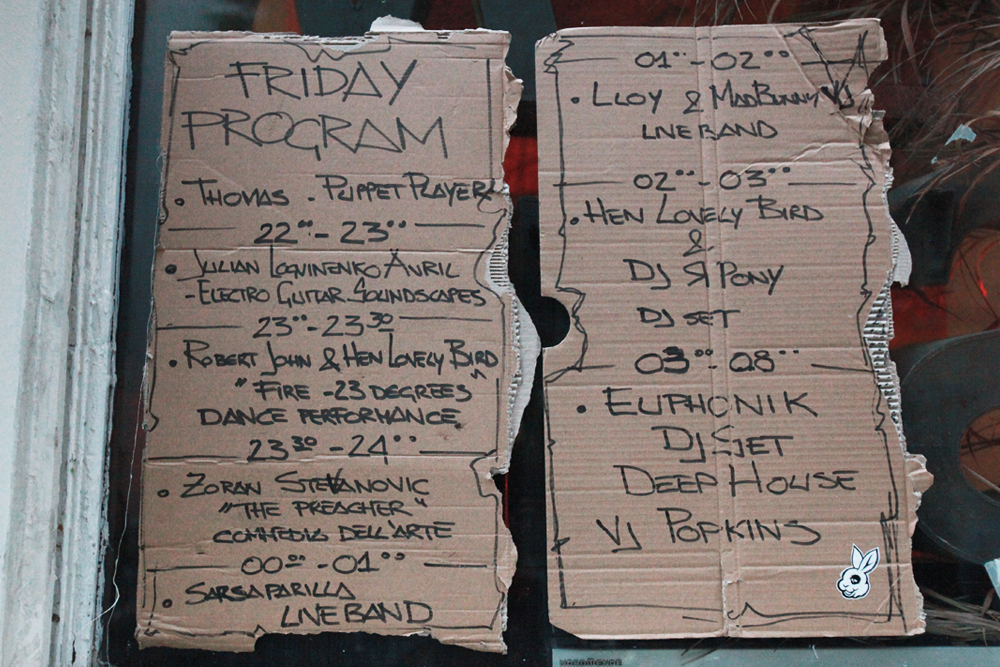 FRIDAY
PROGRAM
• THOMAS - PUPPET PLAYER
22°° - 23°°
• JULIAN LOGVINENKO AVRIL
- ELECTRO GUITAR SOUNDSCAPES
23°° - 23³⁰
• ROBERT JOHN & HEN LOVELY BIRD
"FIRE - 23 DEGREES"
DANCE PERFORMANCE
23³⁰ - 24°°
• ZORAN STEVANOVIC
"THE PREACHER"
COMMEDIA DELL'ARTE
00°° - 01°°
• SARSAPARILLA
LIVE BAND
01°° - 02°°
• LLOY & MADBUNNY VJ
LIVE BAND
02°° - 03°°
• HEN LOVELY BIRD
&
DJ Я PONY
DJ SET
03°° - 08°°
• EUPHONIK
DJ SET
DEEP HOUSE
VJ POPKINS